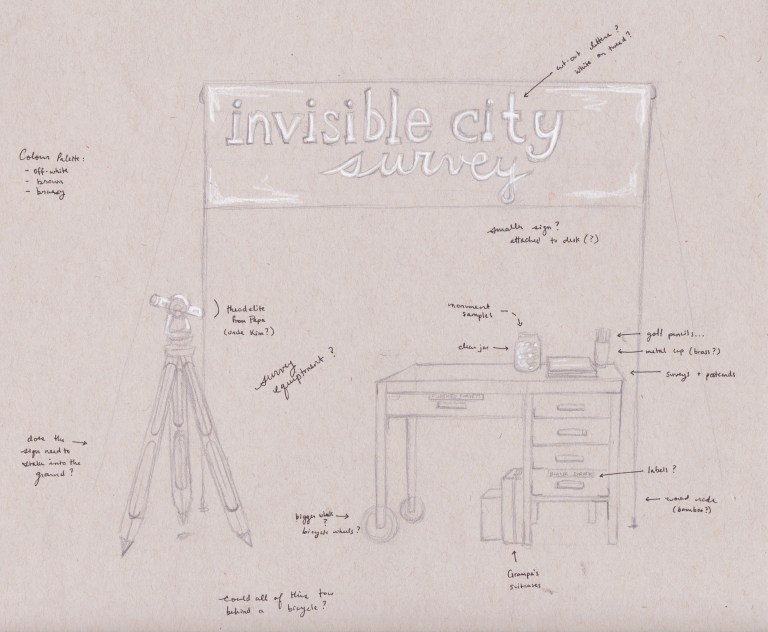 cut-out letters?
white on tweed?
invisible city
survey
Colour Palette:
- off-white
- brown
- brassy
smaller sign?
attached to desk (?)
theodolite
from Papa
(uncle Kim?)
monument
samples
clear jar
golf pencils...
metal cup (brass?)
surveys + postcards
survey
equiptment?
does the
sign need to
stake into the
ground?
labels?
(bamboo?)
bigger wheel
?
bicycle wheels?
Grampa's
suitcases
could all of this tow
behind a bicycle?